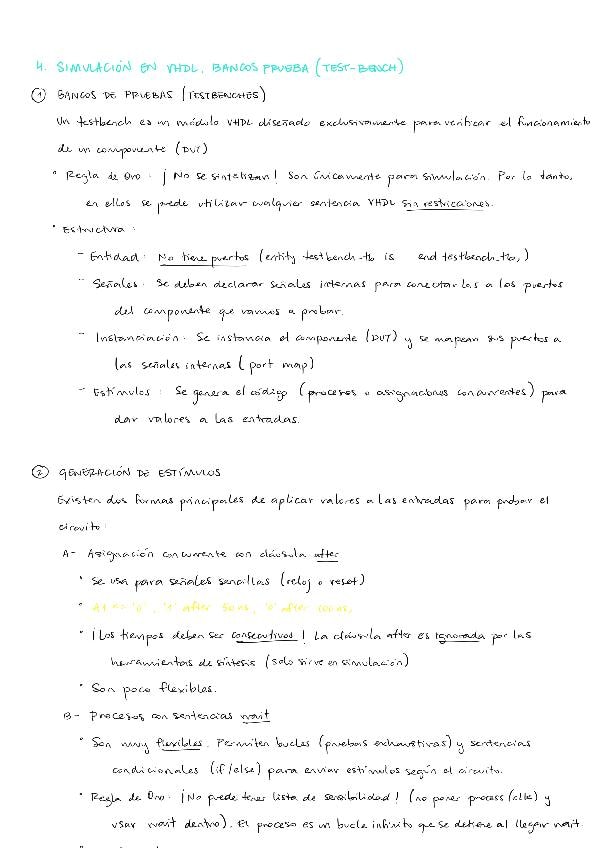 4. SIMULACIÓN EN VHDL, BANCOS PRUEBA (TEST-BENCH)
1 BANCOS DE PRUEBAS (TESTBENCHES)
Un testbench es un módulo VHDL diseñado exclusivamente para verificar el funcionamiento
de un componente (DUT)
• Regla de Oro: ¡No se sintetizan! Son únicamente para simulación. Por lo tanto,
en ellos se puede utilizar cualquier sentencia VHDL sin restricciones.
• Estructura:
- Entidad: No tiene puertos (entity testbench_tb is end testbench_tb;)
- Señales: Se deben declarar señales internas para conectarlas a los puertos
del componente que vamos a probar.
- Instanciación: Se instancia el componente (DUT) y se mapean sus puertos a
las señales internas (port map)
- Estímulos: Se genera el código (procesos o asignaciones concurrentes) para
dar valores a las entradas.
2 GENERACIÓN DE ESTÍMULOS
Existen dos formas principales de aplicar valores a las entradas para probar el
circuito:
A- Asignación concurrente con cláusula after
• Se usa para señales sencillas (reloj o reset)
• A1 <= '0', '1' after 50 ns, '0' after
• ¡Los tiempos deben ser consecutivos! La cláusula after es ignorada por las
herramientas de síntesis (solo sirve en simulación)
• Son poco flexibles.
B- Procesos con sentencias wait
• Son muy flexibles. Permiten bucles (pruebas exhaustivas) y sentencias
condicionales (if/else) para enviar estímulos según el circuito.
• Regla de Oro: ¡No puede tener lista de sensibilidad! (no poner process (clk) y
usar wait dentro). El proceso es un bucle infinito que se detiene al llegar wait.